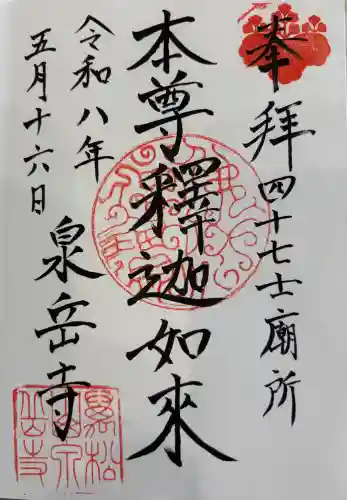 奉拝
四十七士廟所
本尊釋迦如來
令和八年
五月十六日
泉岳寺